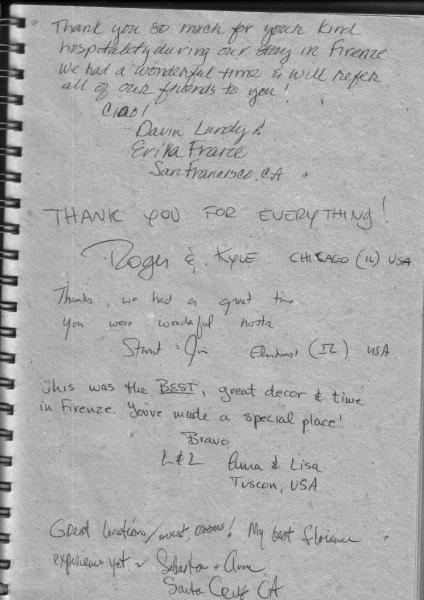 Thank you so much for your kind
hospitality during our stay in Firenze
We had a wonderful time & will refer
all of our friends to you!
Ciao!
Davin &
Erika
San Francisco, CA
THANK YOU FOR EVERYTHING!
Roger & KYLE CHICAGO (IL) USA
Thanks, we had a great time
you were wonderful hosts
Stuart & Jim Elmhurst (IL) USA
This was the BEST, great decor & time
in Firenze. You've made a special place!
Bravo
L & L Anna & Lisa
Tuscon, USA
Great location/ My best florence
experience yet Sebastian + Anne
Santa Cruz CA